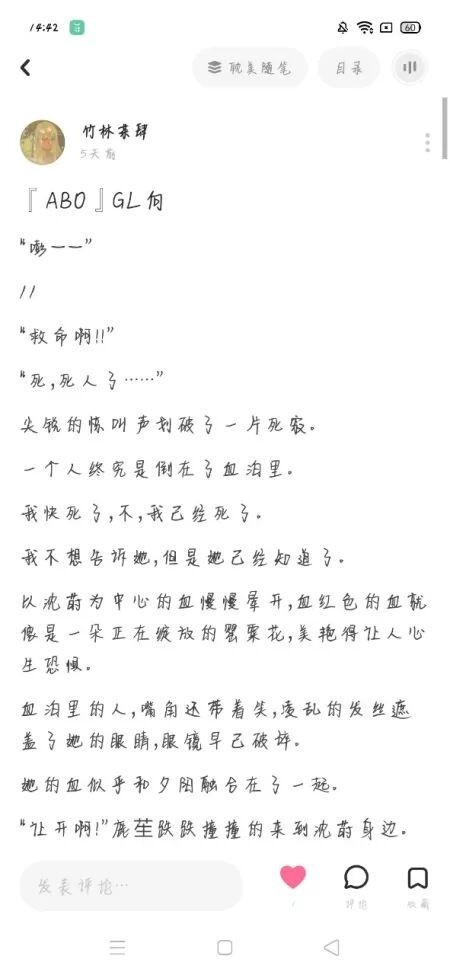 14:42
60
耽美随笔
目录
竹林茶肆
5天前
『ABO』GL向
“嘭——”
//
“救命啊!!”
“死,死人了……”
尖锐的惊叫声划破了一片死寂。
一个人终究是倒在了血泊里。
我快死了,不,我已经死了。
我不想告诉她,但是她已经知道了。
以沈蔚为中心的血慢慢晕开,血红色的血就
像是一朵正在绽放的罂粟花,美艳得让人心
生恐惧。
血泊里的人,嘴角还带着笑,凌乱的发丝遮
盖了她的眼睛,眼镜早已破碎。
她的血似乎和夕阳融合在了一起。
“让开啊!”鹿笙跌跌撞撞的来到沈蔚身边。
发表评论…
1
评论
收藏